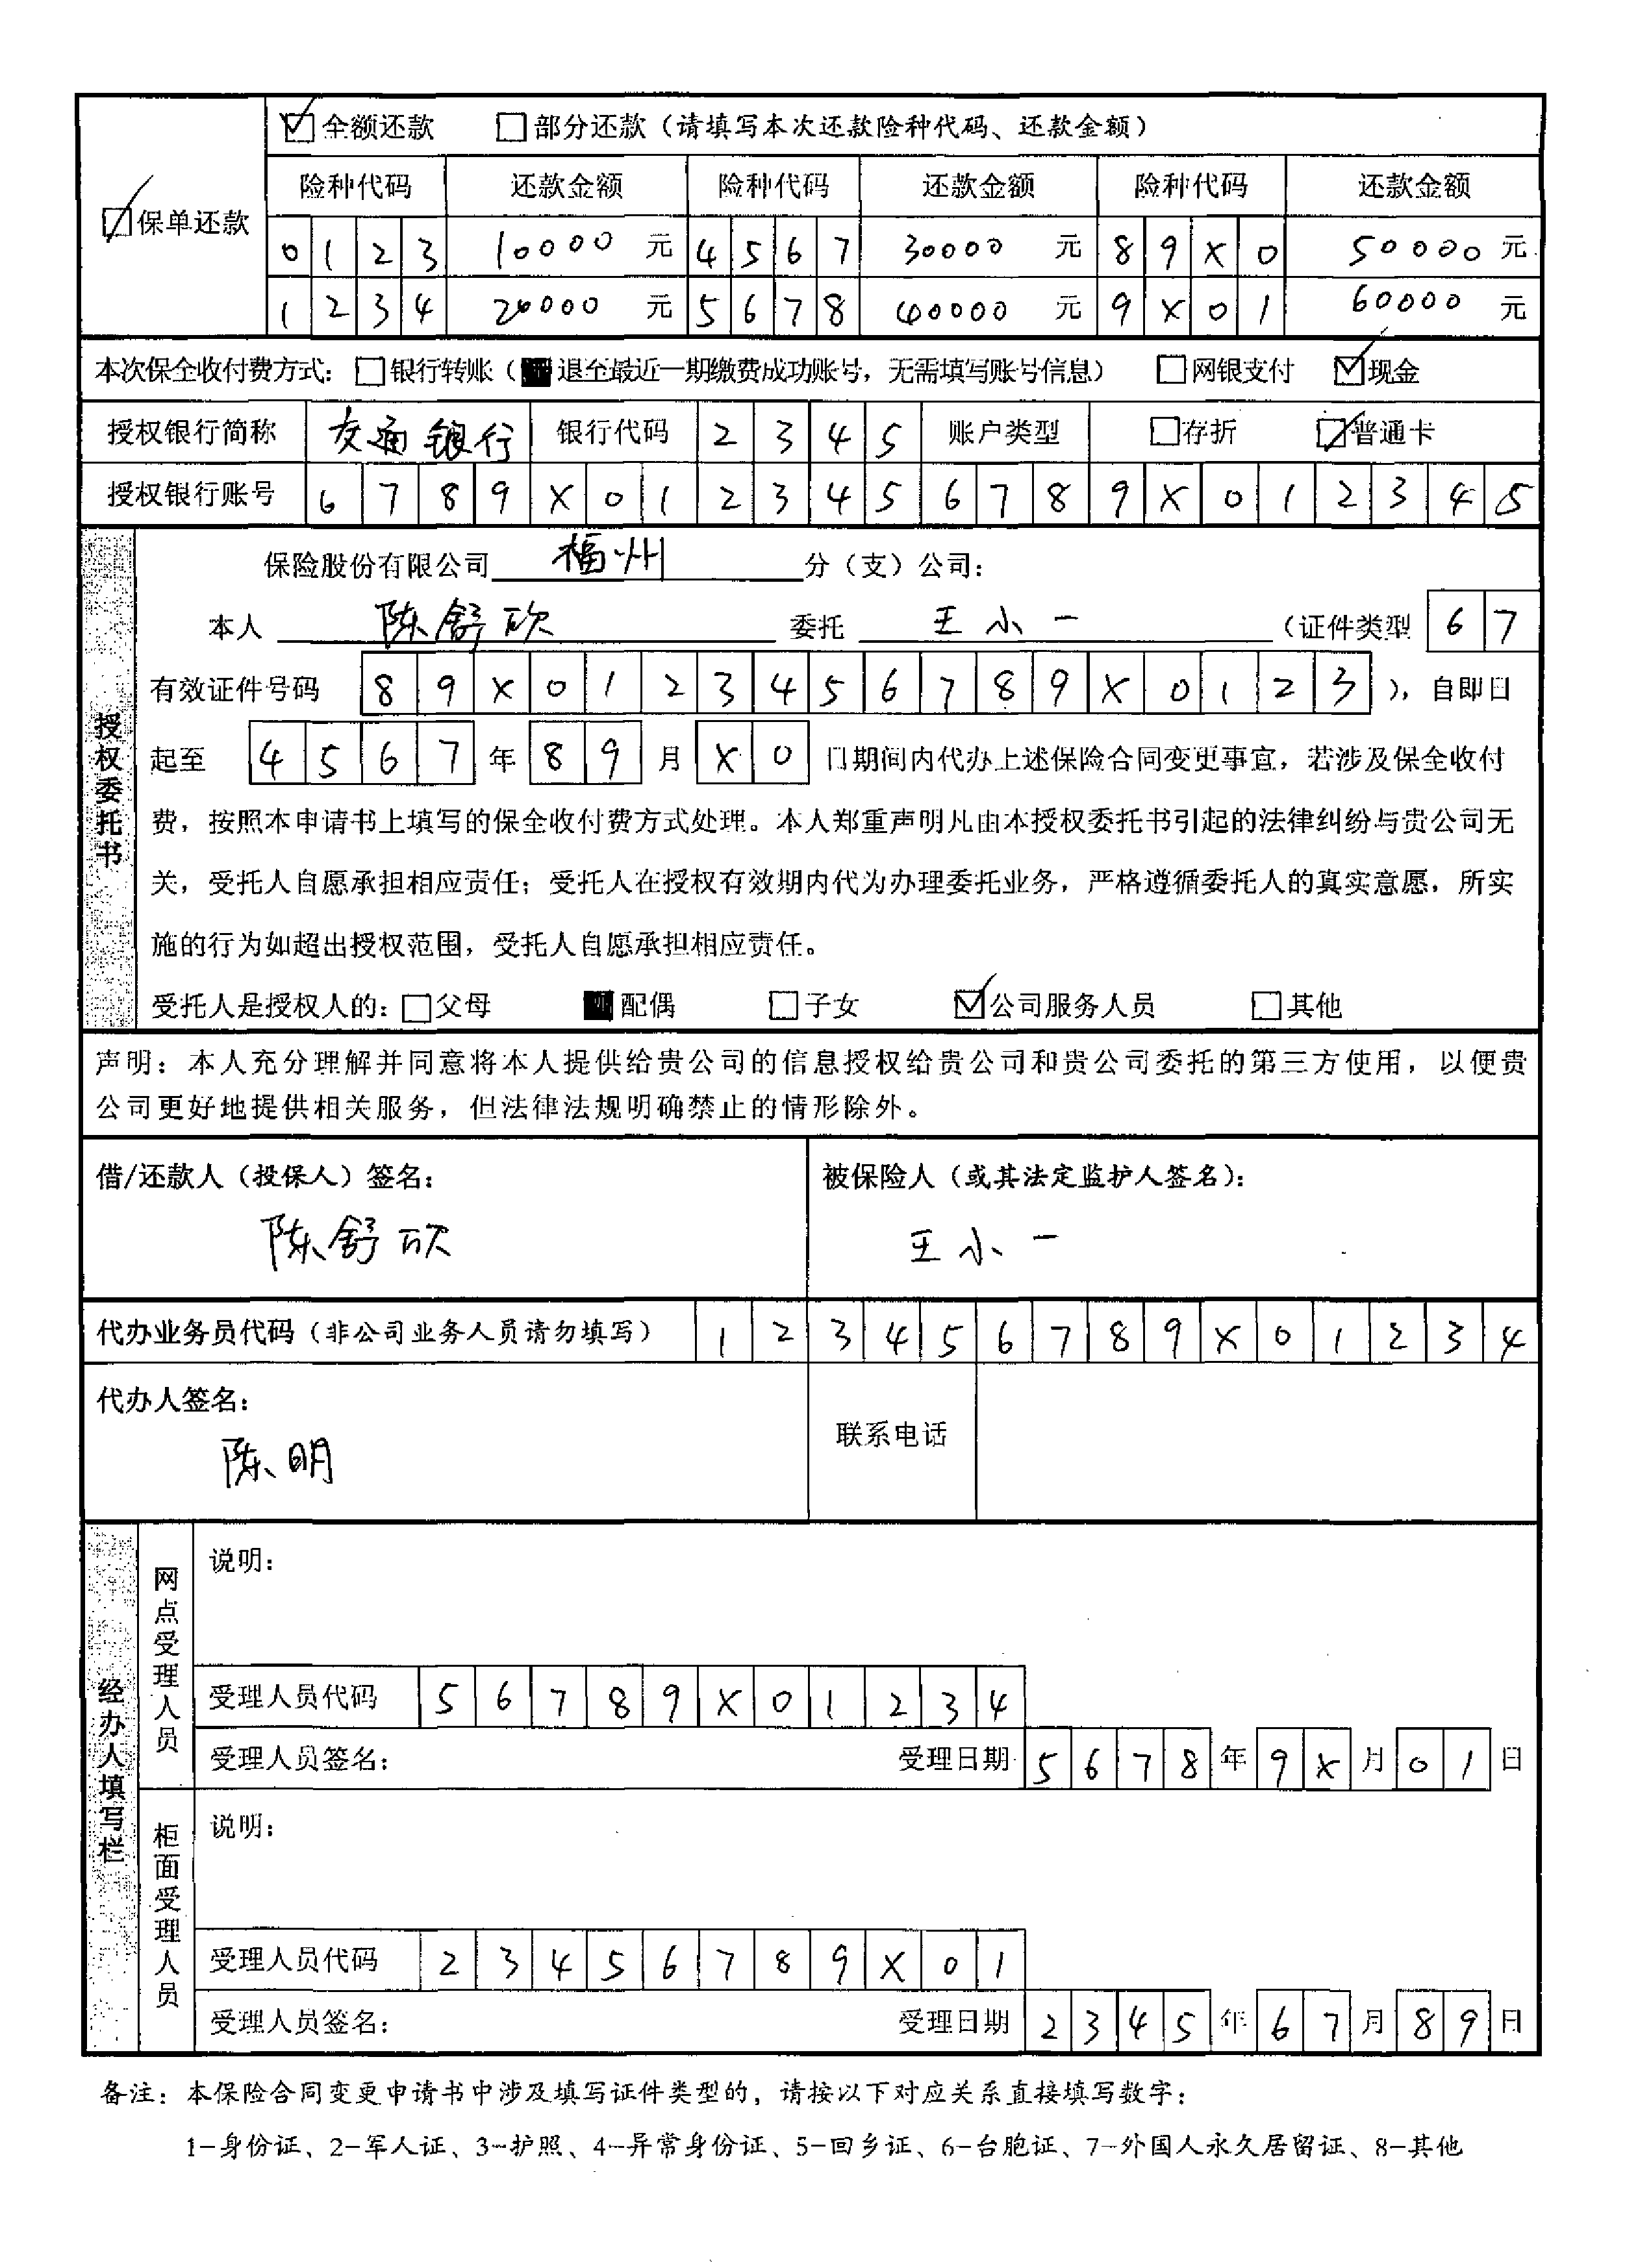 全额还款 部分还款（请填写本次还款险种代码、还款金额）
险种代码 还款金额 险种代码 还款金额 险种代码 还款金额
保单还款
0123 10000 元 4567 30000 元 89X0 50000 元
1234 20000 元 5678 40000 元 9X01 60000 元
本次保全收付费方式： 银行转账（ 退至最近一期缴费成功账号，无需填写账号信息） 网银支付 现金
授权银行简称 交通银行 银行代码 2345 账户类型 存折 普通卡
授权银行账号 6789X0123456789X012345
授权委托书
保险股份有限公司 福州 分（支）公司：
本人 陈舒欣 委托 王小一 （证件类型 67
有效证件号码 89X0123456789X0123 ），自即日
起至 4567 年 89 月 X0 日期间内代办上述保险合同变更事宜，若涉及保全收付
费，按照本申请书上填写的保全收付费方式处理。本人郑重声明凡由本授权委托书引起的法律纠纷与贵公司无
关，受托人自愿承担相应责任；受托人在授权有效期内代为办理委托业务，严格遵循委托人的真实意愿，所实
施的行为如超出授权范围，受托人自愿承担相应责任。
受托人是授权人的： 父母 配偶 子女 公司服务人员 其他
声明：本人充分理解并同意将本人提供给贵公司的信息授权给贵公司和贵公司委托的第三方使用，以便贵
公司更好地提供相关服务，但法律法规明确禁止的情形除外。
借/还款人（投保人）签名： 被保险人（或其法定监护人签名）：
陈舒欣 王小一
代办业务员代码（非公司业务人员请勿填写） 123456789X01234
代办人签名：
陈明 联系电话
经办人填写栏
网点受理人员
说明：
受理人员代码 56789X01234
受理人员签名： 受理日期 5678 年 9X 月 01 日
柜面受理人员
说明：
受理人员代码 23456789X01
受理人员签名： 受理日期 2345 年 67 月 89 日
备注：本保险合同变更申请书中涉及填写证件类型的，请按以下对应关系直接填写数字：
1-身份证、2-军人证、3-护照、4-异常身份证、5-回乡证、6-台胞证、7-外国人永久居留证、8-其他